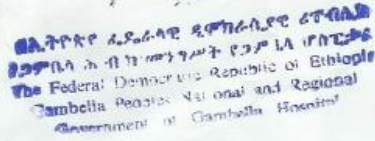 በኢትዮጵያ ፌዴራላዊ ዲሞክራሲያዊ ሪፐብሊክ
የጋምቤላ ሕ ብ ክ መንግሥት የጋምቤላ ሆስፒታል
The Federal Democratic Republic of Ethiopia
Gambella Peoples National and Regional
Government of Gambella Hospital